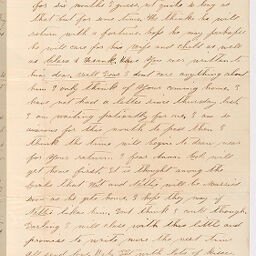 for six months I guess, it looks as long as
that but for some time. He thinks he will
return with a fortune. hope he may perhaps
he will care for his wife and child as well
as You ever written to
him dear, well I dont care anything about
him I only think of Your coming home, I
have not had a letter since Thursday last
I am waiting patiently for one, I am so
anxious for this month to pass then I
think the time will begin to draw near
for Your return. I fear dear will
get home first. It is thought among the
that Will and Nettie will be married
soon as he gets home, I hope they may if
Nettie likes him, but think I will though,
Darling I will close with this little and
promise to write, more the next time
All send love with lots of kisses